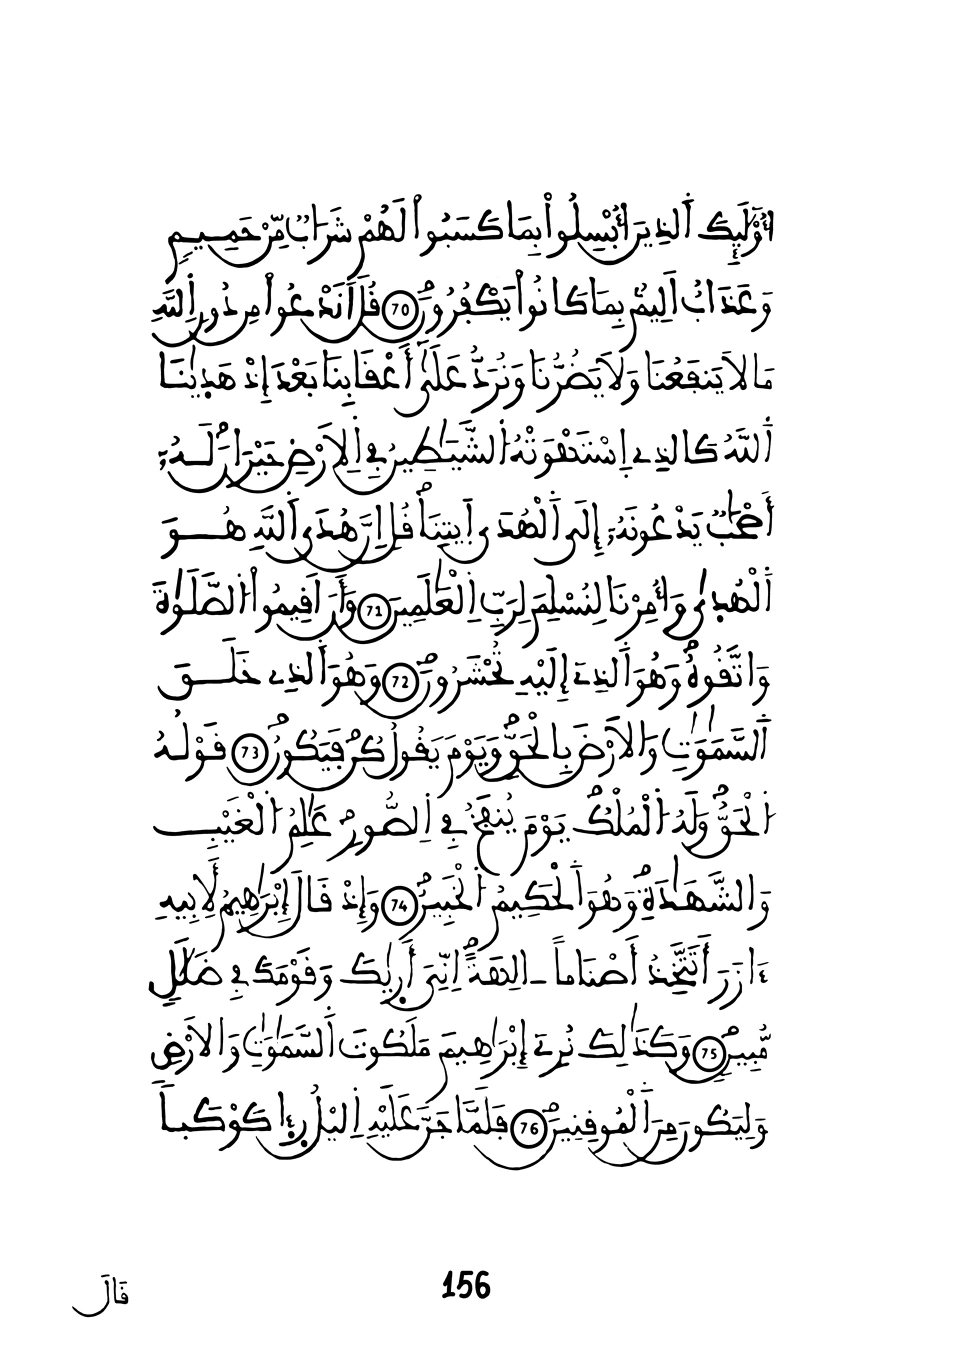 أُوْلَٰٓئِكَ ٱلذِينَ أُبْسِلُواْ بِمَا كَسَبُواْ لَهُمْ شَرَابٌ مِّنْ حَمِيمٍ
وَعَذَابٌ اَلِيمٌۢ بِمَا كَانُواْ يَكْفُرُونَ 70 قُلَ اَنَدْعُواْ مِن دُونِ اِ۬للَّهِ
مَا لَا يَنفَعُنَا وَلَا يَضُرُّنَا وَنُرَدُّ عَلَىٰٓ أَعْقَابِنَا بَعْدَ إِذْ هَد۪يٰنَا
اَ۬للَّهُ كَالذِے اِ۪سْتَهْوَتْهُ اُ۬لشَّيَٰطِينُ فِے اِ۬لَارْضِ حَيْرَانَۖ لَهُۥٓ
أَصْحَٰبٌ يَدْعُونَهُۥٓ إِلَى اَ۬لْهُدَى اَ۪يتِنَاۖ قُلِ اِنَّ هُدَى اَ۬للَّهِ هُوَ
اَ۬لْهُد۪يٰ وَأُمِرْنَا لِنُسْلِمَ لِرَبِّ اِ۬لْعَٰلَمِينَ 71 وَأَنَ اَقِيمُواْ اُ۬لصَّلَوٰةَ
وَاتَّقُوهُۖ وَهُوَ اَ۬لذِےٓ إِلَيْهِ تُحْشَرُونَۖ 72 وَهُوَ اَ۬لذِے خَلَقَ
اَ۬لسَّمَٰوَٰتِ وَالَارْضَ بِالْحَقِّۖ وَيَوْمَ يَقُولُ كُن فَيَكُونُۖ 73 قَوْلُهُ
اُ۬لْحَقُّۖ وَلَهُ اُ۬لْمُلْكُۖ يَوْمَ يُنفَخُ فِے اِ۬لصُّورِۖ عَٰلِمُ اُ۬لْغَيْبِ
وَالشَّهَٰدَةِۖ وَهُوَ اَ۬لْحَكِيمُ اُ۬لْخَبِيرُۖ 74 وَإِذْ قَالَ إِبْرَٰهِيمُ لِأَبِيهِ
ءَازَرَ أَتَتَّخِذُ أَصْنَاماً ـ اٰلِهَةًۖ اِنِّيَ أَر۪يٰكَ وَقَوْمَكَ فِے ضَلَٰلٍ
مُّبِينٍۖ 75 وَكَذَٰلِكَ نُرِےٓ إِبْرَٰهِيمَ مَلَكُوتَ اَ۬لسَّمَٰوَٰتِ وَالَارْضِ
وَلِيَكُونَ مِنَ اَ۬لْمُوقِنِينَۖ 76 فَلَمَّا جَنَّ عَلَيْهِ اِ۬ليْلُ ر۪ء۪ا كَوْكَباً
156
قَالَ